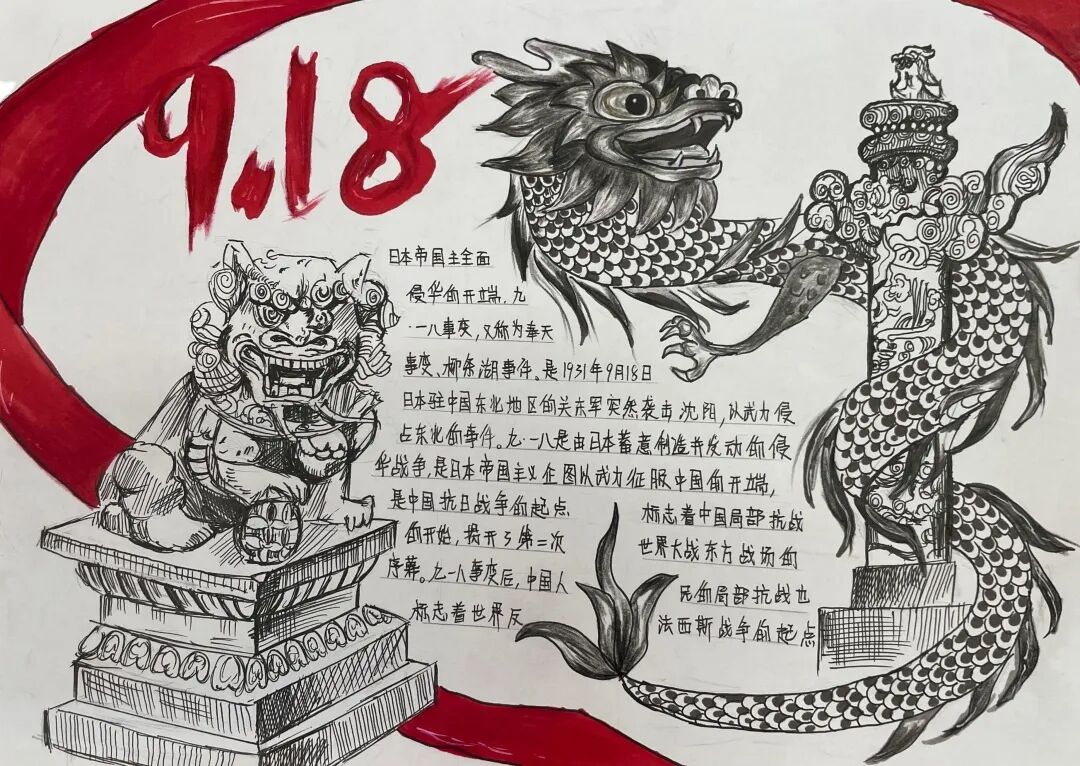 9.18
日本帝国主全面
侵华的开端,九
·一八事变,又称为奉天
事变、柳条湖事件。是1931年9月18日
日本驻中国东北地区的关东军突然袭击沈阳,以武力侵
占东北的事件。九·一八是由日本蓄意制造并发动的侵
华战争,是日本帝国主义企图以武力征服中国的开端,
是中国抗日战争的起点 标志着中国局部抗战
的开始,揭开了第二次 世界大战东方战场的
序幕。九一八事变后,中国人 民的局部抗战也
标志着世界反 法西斯战争的起点